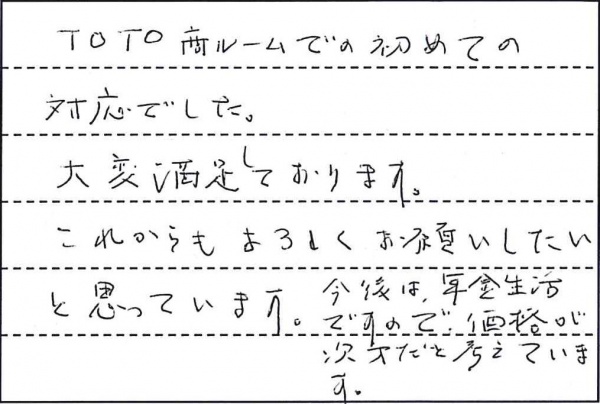 TOTO商ルームでの初めての
対応でした。
大変満足しております。
これからもよろしくお願いしたい
と思っています。
今後は、年金生活
ですので、価格が
次才だと考えていま
す。